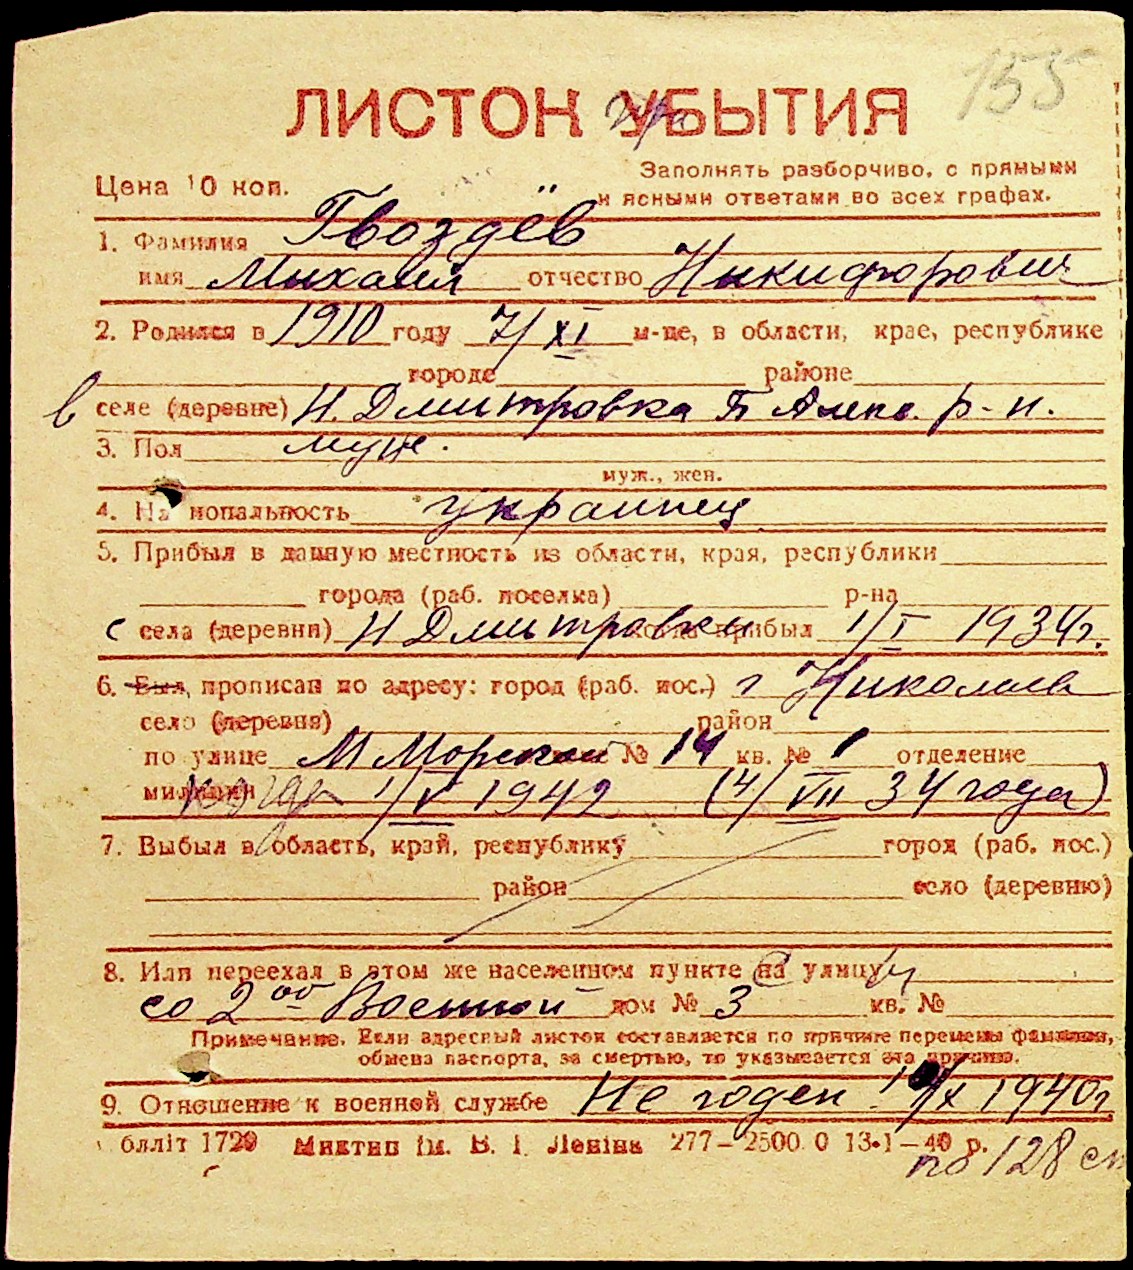 155
ЛИСТОК УБЫТИЯ
при
Цена 10 коп.
Заполнять разборчиво, с прямыми
и ясными ответами во всех графах.
1. Фамилия Гвоздёв
имя Михаил отчество Никифорович
2. Родился в 1910 году 7/XI м-це, в области, крае, республике
городе районе
в селе (деревне) Н. Дмитровка Б Алепс. р-н.
3. Пол муж.
муж., жен.
4. Национальность украинец
5. Прибыл в данную местность из области, края, республики
города (раб. поселка) р-на
с села (деревни) Н Дмитровки когда прибыл 1/I 1934г.
6. Был, прописан по адресу: город (раб. пос.) г Николаев
село (деревня) район
по улице М Морской № 14 кв. № 1 отделение
милиции когда 1/V 1942 (4/VII 34 года)
7. Выбыл в область, край, республику город (раб. пос.)
район село (деревню)
8. Или переехал в этом же населенном пункте на улицу
со 2ой Военной дом № 3 кв. №
Примечание. Если адресный листок составляется по причине перемены фамилии,
обмена паспорта, за смертью, то указывается эта причина.
9. Отношение к военной службе Не годен /IX 1940г
по 128 ст
бліт 1729 Миктип ім. В. І. Леніна 277–2500 0 13·1–40 р.